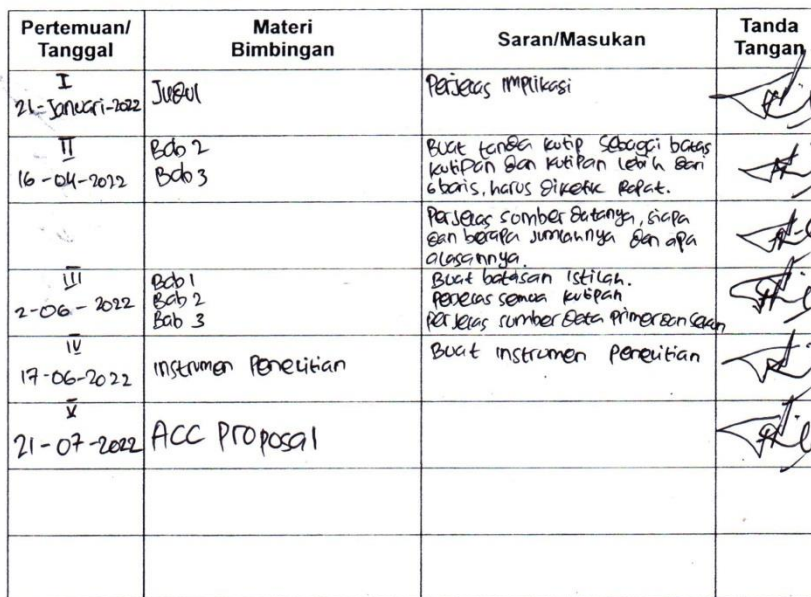 Pertemuan/
Tanggal
Materi
Bimbingan
Saran/Masukan
Tanda
Tangan
I
21-Januari-2022
Judul
Perjelas Implikasi
II
16-04-2022
Bab 2
Bab 3
Buat tanda kutip sebagai batas
kutipan dan kutipan lebih dari
6 baris, harus diketik rapat.
Perjelas sumber datanya, siapa
dan berapa jumlahnya dan apa
alasannya.
III
2-06-2022
Bab 1
Bab 2
Bab 3
Buat batasan istilah.
semua kutipan
Perjelas sumber data primer dan sekun
IV
17-06-2022
Instrumen Penelitian
Buat instrumen penelitian
V
21-07-2022
ACC Proposal